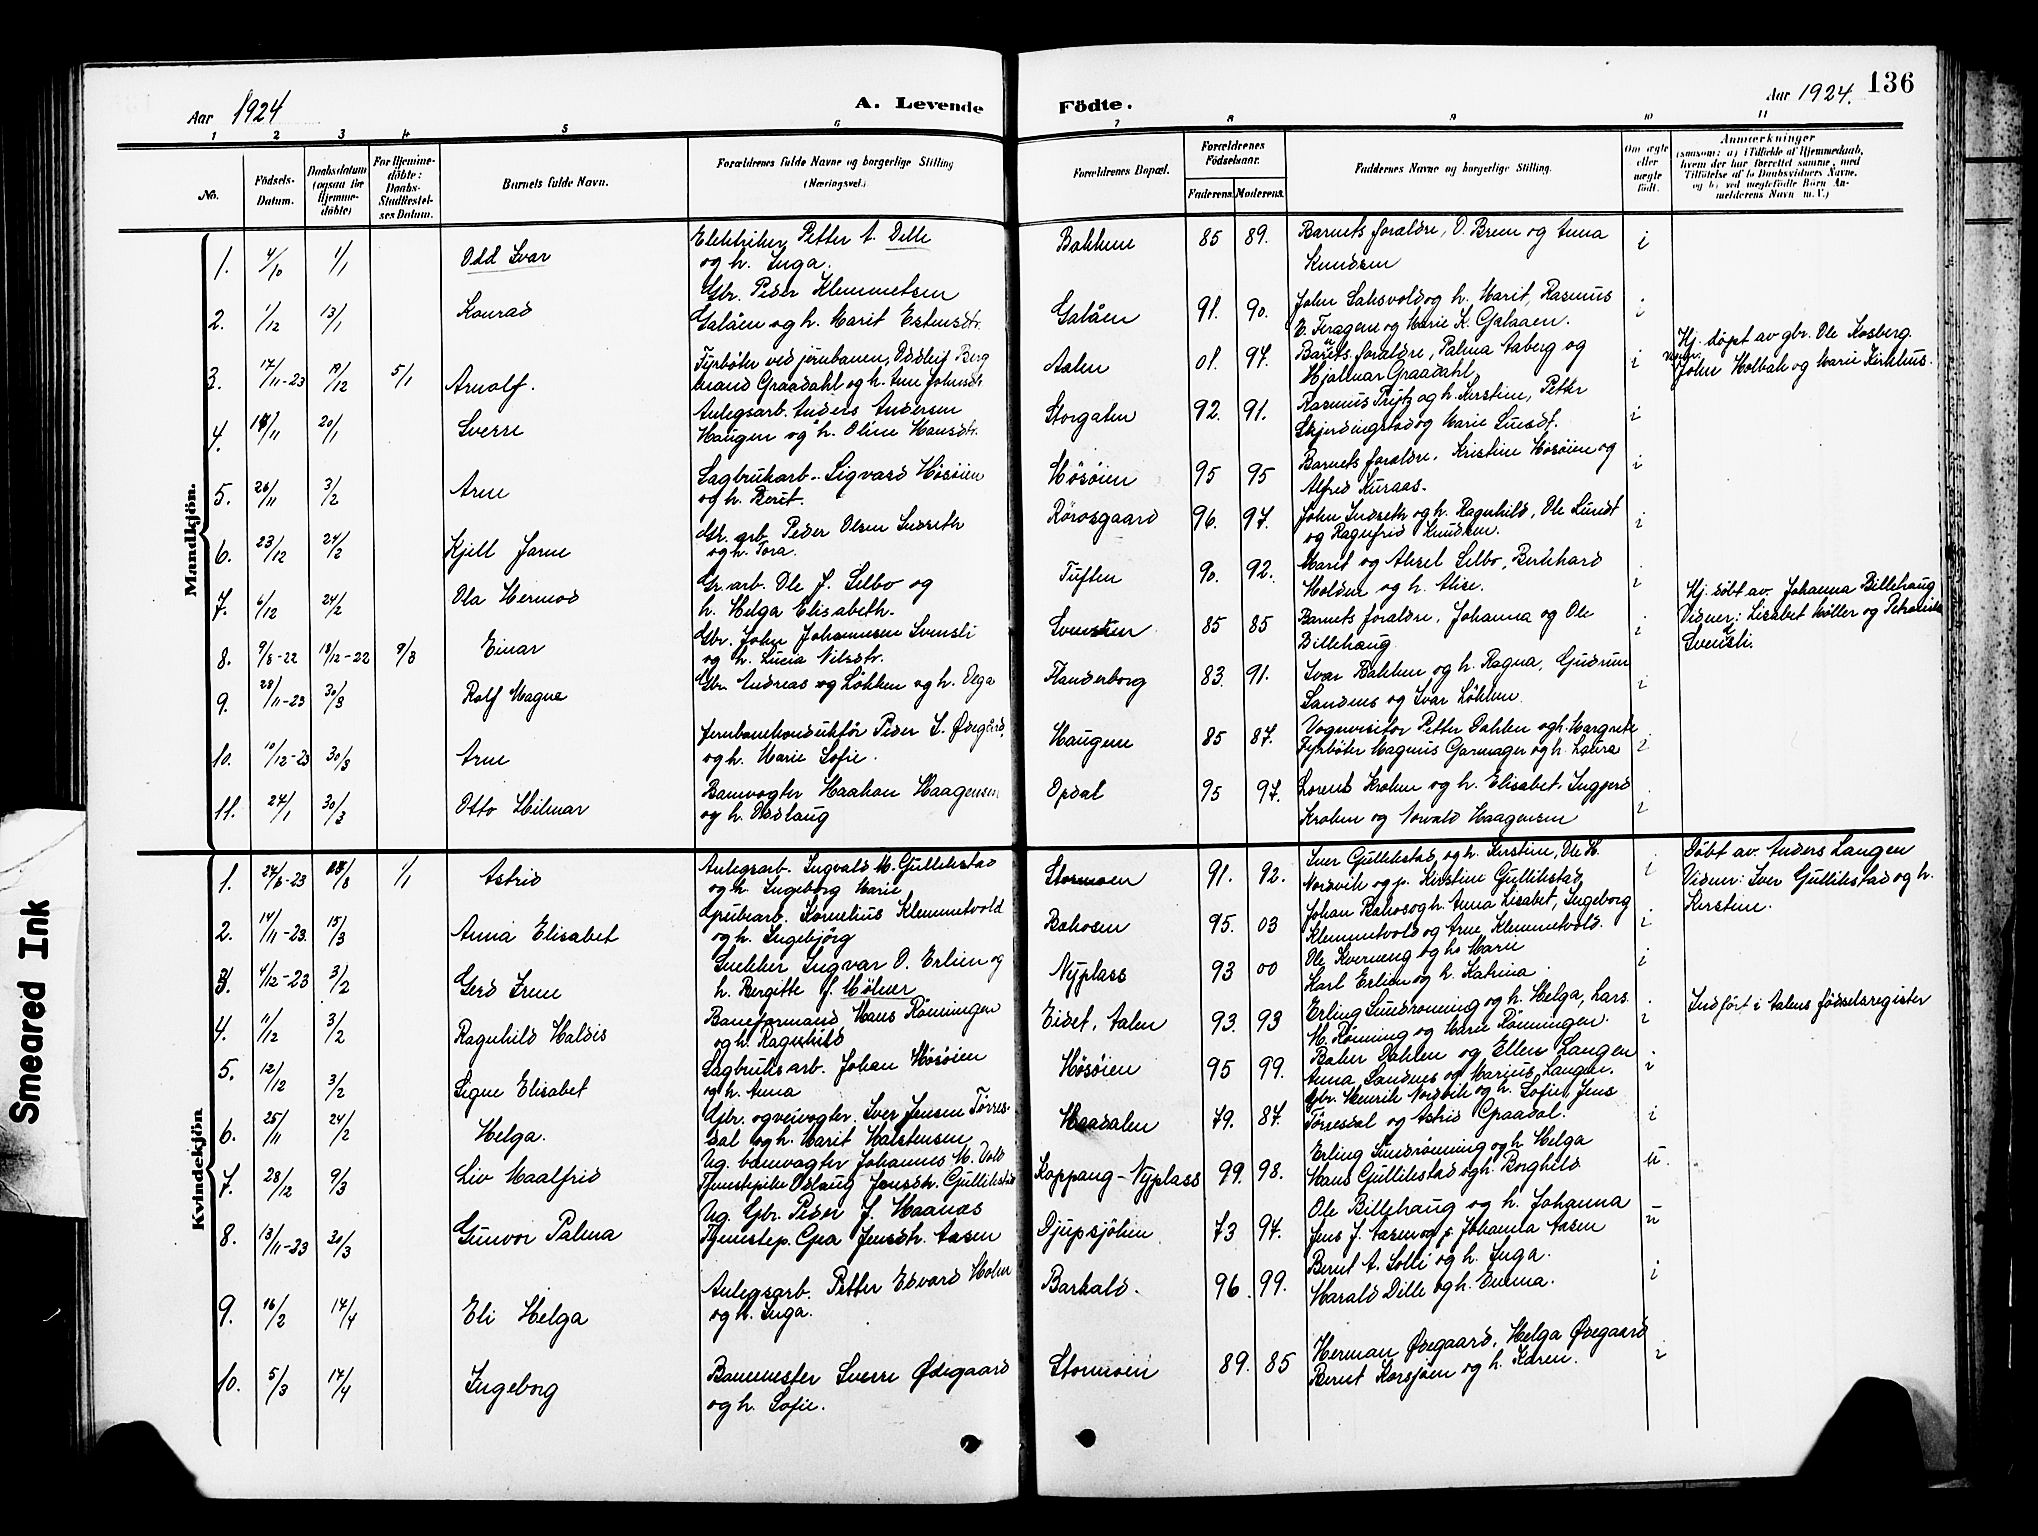 136
Aar 1924 A. Levende Födte. Aar 1924.
1 2 3 4 5 6 7 8 9 10 11
No. Födsels-Datum. Daabsdatum (ogsaa for Hjemme-döbte) For Hjemme-döbte: Daabs-Stadfæstel-ses Datum. Barnets fulde Navn. Forældrenes fulde Navne og borgerlige Stilling (Næringsvei.) Forældrenes Bopæl. Forældrenes Födselsaar. Faderens Moderens. Faddernes Navne og borgerlige Stilling. Om ægte eller uægte födt. Anmærkninger (saasom: a) i Tilfælde af Hjemmedaab, hvem der har forrettet samme, med Tilföielse af to Daabsvidners Navne, og b) ved uægtefödte Börn An-melderens Navn m. V.)
Mandkjön.
1. 4/10 1/1 Odd Ivar Elektriker Petter A. Dille og h. Inga. Bakkene 85 89. Barnets foraldre, O. Brem og Anna Knudsen i
2. 1/12 13/1 Konrad Gbr. Peder Klemmetsen Galåen og h. Marit Estensdtr. Galåen 91. 90. John Saksvold og h. Marit, Rasmus E. Feragen og Marie K. Galaaen. i
3. 17/11-23 19/12 5/1 Arnolf. Fyrbøter ved jernbanen, Oddleif Berg mand Graadahl og h. Ane Johnsdtr Aalen 01. 97. Barnets foraldre, Palma Aaberg og Hjalmar Graadahl i Hj. døpt av gbr. Ole Kosberg. Vidner: John Holbak og Marie Kirkhus.
4. 11 20/1 Sverre Anlegsarb. Anders Andersen Haugen og h. Oline Hansdtr. Storgaten 92. 91. Rasmus Prytz og h. Kerstine, Petter Skjerdingstad og Marie Lunedt. i
5. 26/11 3/2 Arne Sagbrukarb. Sigvard Høsøien og h. Berit. Høsøien 95 95 Barnets foraldre. Kristine Høsøien og Alfred Kuraas. i
6. 23/12 24/2 Kjell Jarne Gr. arb. Peder Olsen Indseth og h. Tora. Rørosgaard 96. 97. John Indseth og h. Ragnhild, Ole Lundt og Ragnfrid Knudsen. i
7. 6/12 24/2 Ola Hermod Gr. arb. Ole J. Selbo og h. Helga Elisabeth. Tuften 90. 92. Marit og Aksel Selbo, Bernhard Holden og h. Alise. i
8. 9/8-22 18/12-22 9/3 Einar Gbr. John Johannesen Svensli og h. Lucia Nilsdtr. 85 85 Barnets foraldre, Johanna og Ole Billehaug i Hj. døbt av. Johanna Billehaug Vidner: Lisabet Møller og Svensli.
9. 28/11-23 30/3 Rolf Magne Gbr Andreas Løkken og h. Dega Flanderborg 83. 91. Ivar Bakken og h. Ragna, Gudrun Sandnes og Ivar Løkken. i
10. 10/12-23 30/3 Arne Jernbanekonduktør Peder S. Ødegård, og h. Marie Sofie. Haugene 85 87. Vognvisitør Petter Dahlen og h. Margrete Fyrbøter Magnus Garmager og h. Laura i
11. 24/1 30/3 Otto Hilmar Banevogter Haakon Haagensen og h. Oddlaug Opdal 95 97. Lorents Krohn og h. Elisabet. Ingjerd Krohn og Norvald Haagensen i
Kvindekjön
1. 24/8-23 1/1 Astrid Anlegsarb. Ingvald M. Gullikstad og h. Ingeborg Marie Stormoen 91. 92. Iver Gullikstad og h. Kirstine, Ole H. Nordvik og p. Kirstine Gullikstad i Døbt av. Anders Langen Vidner: Iver Gullikstad og h. Kerstine.
2. 14/11-23. 15/3 Anna Elisabet Grubearb. Kornelius Klemmetvold og h. Ingebjørg Bakosen 95. 03 Johan Bakos og h. Anna Lisabet, Ingeborg Klemmetvold og Arne Klemmetvold. i
3. 4/12-23 3/2 Gerd Irene Snekker Ingvar O. Erlien og h. Bergitte f. Møller Nyplass 93 00 Ole Kverneng og hs Marie Karl Erlien og h. Katrina. i
4. 11/12 3/2 Ragnhild Haldis Baneformand Hans Rønningen og h. Ragnhild Eidet, Aalen 93. 93 Erling Sundrønning og h. Helga, Lars M. Rønning og Marie Rønningen. i Indført i Aalens fødselsregister
5. 12/12 3/2 Signe Elisabet Sagbruksarb. Johan Høsøien og h. Anna Høsøien 95 99. Baker Dahlen og Ellen Langen Anna Sandnes og Marius Langen. i
6. 25/11 24/2 Helga. Gbr. og veivogter. Iver Jensen Tørres-dal og h. Marit Halstensen Haadalen 79. 87. Gbr. Henrik Nordvik og h. Sofie, Jens Tørresdal og Astrid Graadal. i
7. 28/12 9/3 Liv Maalfrid Ug. banevogter Johannes M. Vold Tjenestepike Odlaug Jensdtr. Gullikstad Koppang-Nyplass 99. 98. Erling Sundrønning og h Helga Hans Gullikstad og h. Borghild u.
8. 13/11-23 30/3 Gunvor Palma Ug. Gbr. Peder J. Haanæs Tjenestep. Gea Jensdtr. Aasen Djupsjølien 73 97. Ole Billehaug og h. Johanna Jens J. Aasen og p. Johanna Aasen u
9. 16/2 14/4 Eli Helga Anlegsarb. Petter Edvard Holm og h. Inga. Barkald. 96. 99. Bernt A. Solli og h. Inga. Harald Dille og h. Emma. i
10. 5/3 14/4 Ingeborg Banemester Sverre Ødegaard og h. Sofie. Stormoen 89. 85 Herman Ødegaard, Helga Ødegaard Bernt Korsjøen og h. Karen. i
Smeared Ink